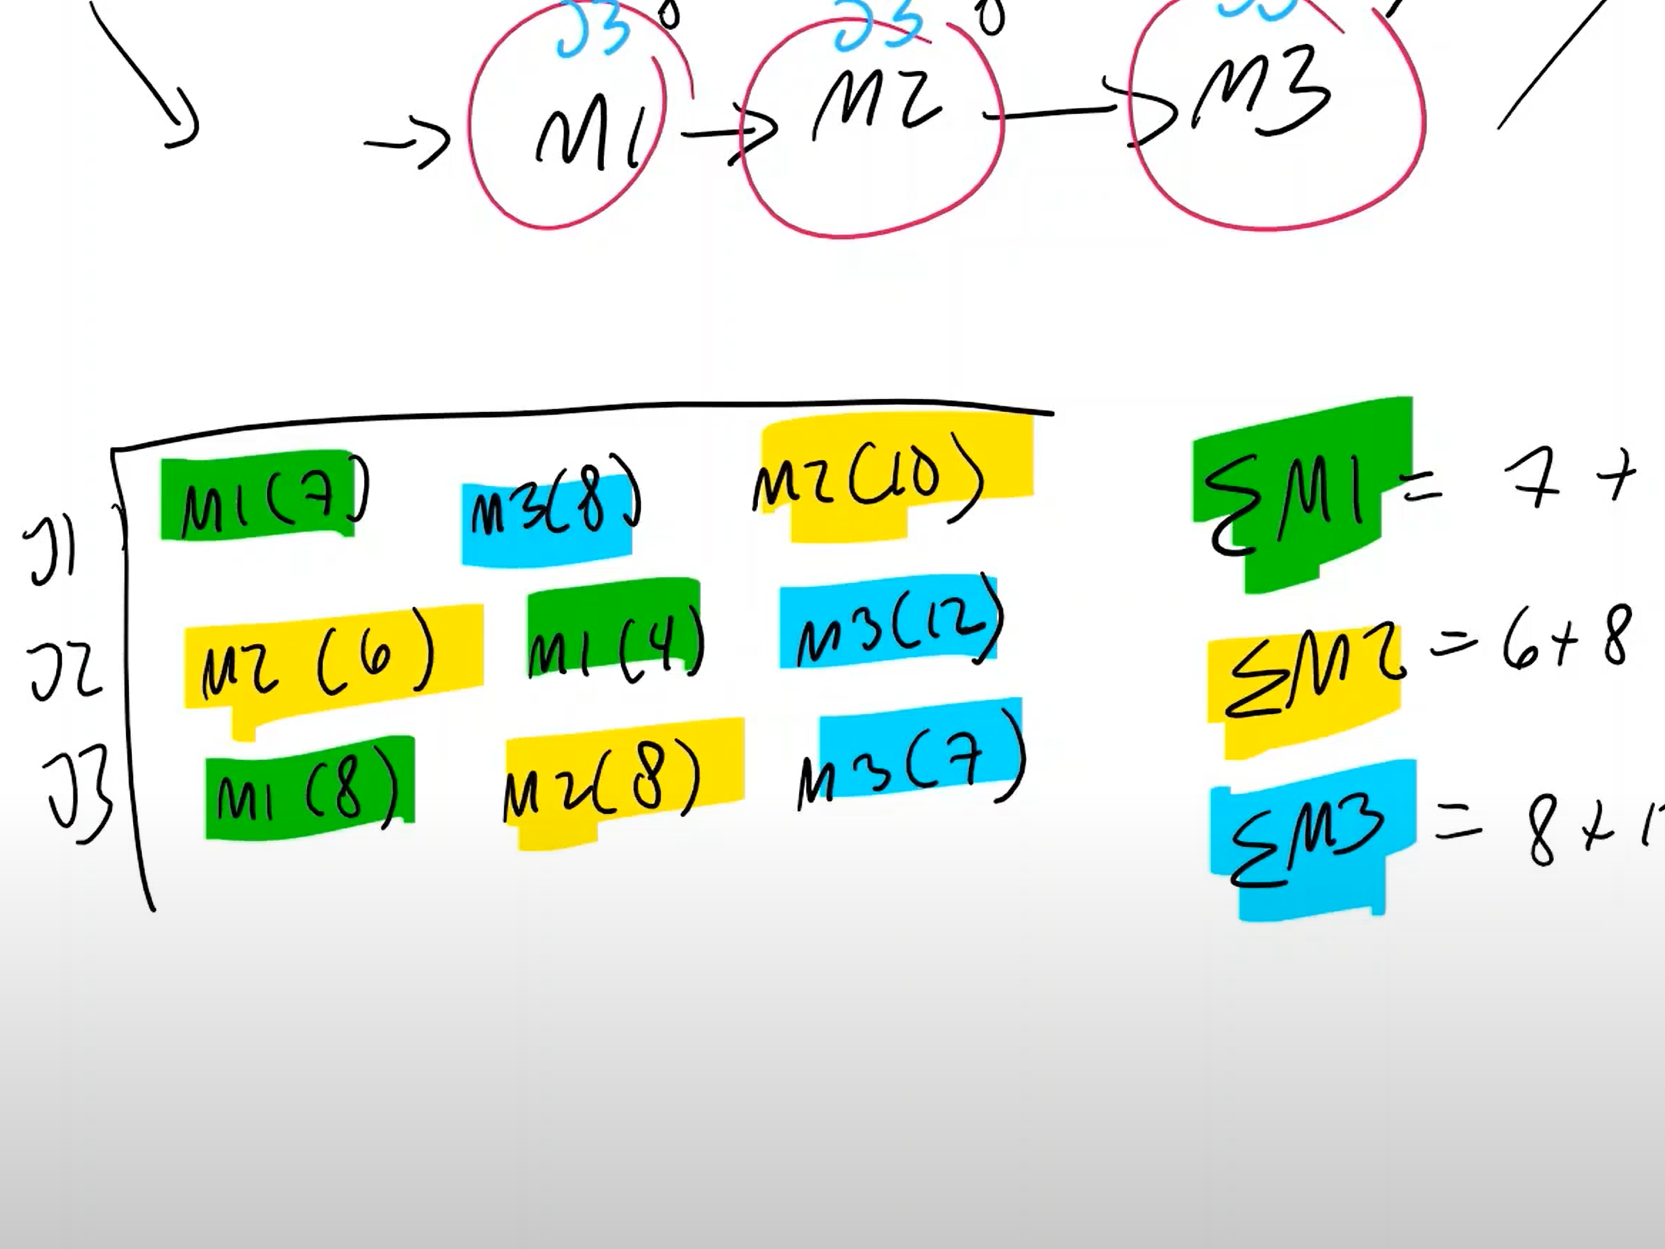 J3 0 J3 0
→ M1 → M2 → M3
J1 M1(7) M3(8) M2(10)
J2 M2(6) M1(4) M3(12)
J3 M1(8) M2(8) M3(7)
ΣM1 = 7 +
ΣM2 = 6+8
ΣM3 = 8+1